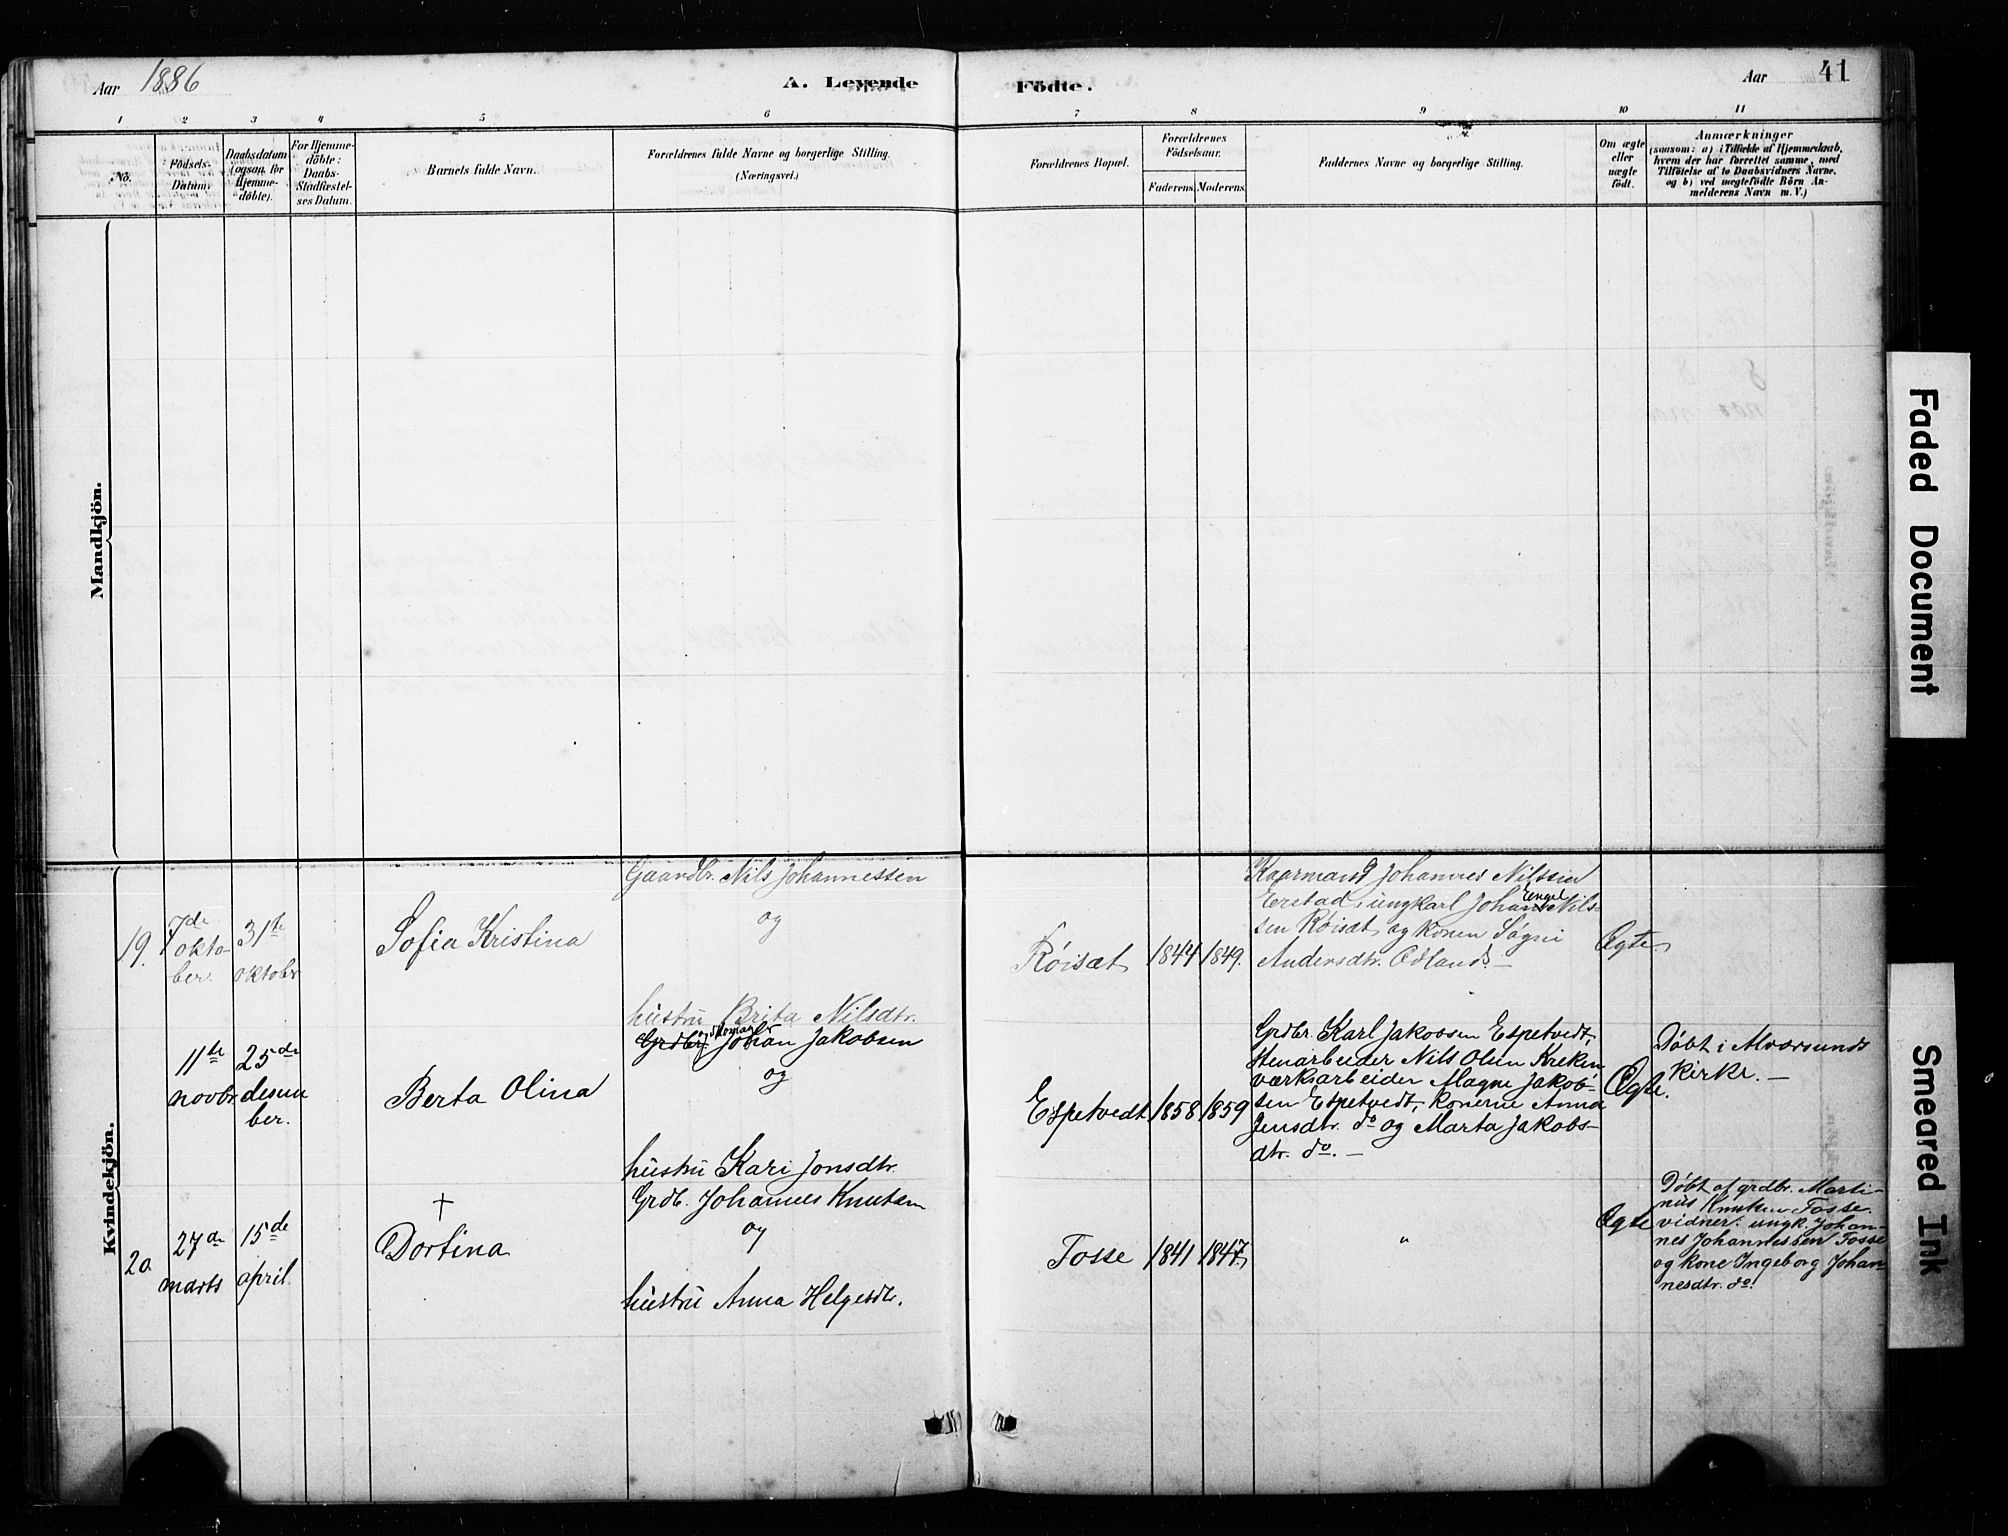 Aar 1886
A. Levende
Födte.
Aar
41
1 2 3 4 5 6 7 8 9 10 11
No.
Födsels-
Datum.
Daabsdatum
(ogsaa for
Hjemme-
døbte).
For Hjemme-
döbte:
Daabs-
Stadfæstel-
ses Datum.
Barnets fulde Navn.
Forældrenes fulde Navne og borgerlige Stilling
(Næringsvei.)
Forældrenes Bopæl.
Forældrenes
Födselsaar.
Faderens. Moderens.
Faddernes Navne og borgerlige Stilling.
Om ægte
eller
uægte
födt.
Anmærkninger
(saasom: a) i Tilfælde af Hjemmedaab,
hvem der har forrettet samme, med
Tilföielse af to Daabsvidners Navne,
og b) ved uægtefödte Börn An-
melderens Navn m. V.)
Mandkjön.
Kvindekjön.
19.
7de
okto-
ber.
31te
oktobr
Sofia Kristina
Gaardbr. Nils Johannessen
og
hustru Brita Nilsdtr.
Röisæt
1844
1849.
Kaarmand Johannes Nilssen
Eerstad, ungkarl Johan Engel Nils-
sen Röisæt og konen Sögni
Andersdtr. Ödland. –
Ægte
11te
novbr.
25de
desem
ber.
Berta Olina
Grdbr. og skomager Johan Jakobsen
og
hustru Kari Jonsdtr.
Espetvedt
1858
1859
Grdbr. Karl Jakobsen Espetvedt,
stenarbeider Nils Olsen Kreken
værksarbeider Magne Jakob-
sen Espetvedt, konerne Anna
Jensdtr. do og Marta Jakobs-
dtr. do. –
Ægte.
Döbt i Alversunds
kirke. –
20
27de
marts
15de
april.
†
Dortina
Grdb. Johannes Knutsen
og
hustru Anna Helgesdtr.
Tosse
1841
1847.
"
Ægte
Döbt af grdbr. Marti-
nus Knutsen Tosse.
vidner: ungk. Johan-
nes Johannessen Tosse
og kone Ingeborg Johan-
nesdtr. do.
Faded Document
Smeared Ink